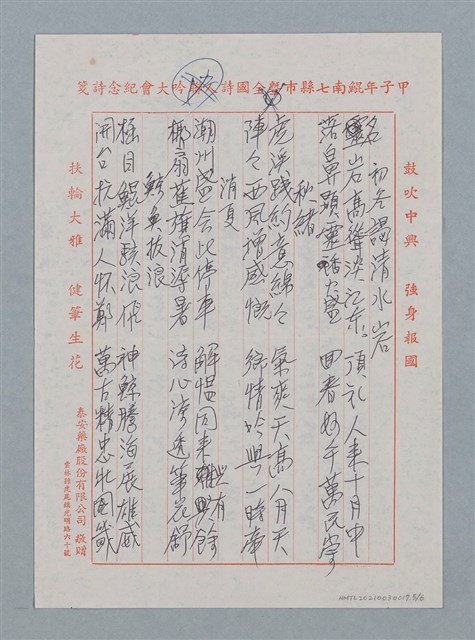 甲子年鯤南七縣市暨全國詩人聯吟大會紀念詩箋
鼓吹中興 強身報國
初冬謁清水岩
名岩高聳淡江東 頂礼人来十月中
落鼻頭 曲看好千萬民
秋緒
虎溪踐約意綿々 氣爽天高八月天
陣々西風增感慨 鄉情吟興一時牽
消夏
潮州盛会此停車 解慍回来興有餘
椰扇蕉旗消溽暑 涼心滲透筆花舒
鯨魚拔浪
極目鯤洋駭浪飛 神鯨騰海展雄威
開台抗滿人怀鄭 萬古精忠北國
扶輪大雅 健筆生花
泰安藥廠股份有限公司 敬贈
雲林縣虎尾鎮光明路六十號
NMTL20210030017.5/6